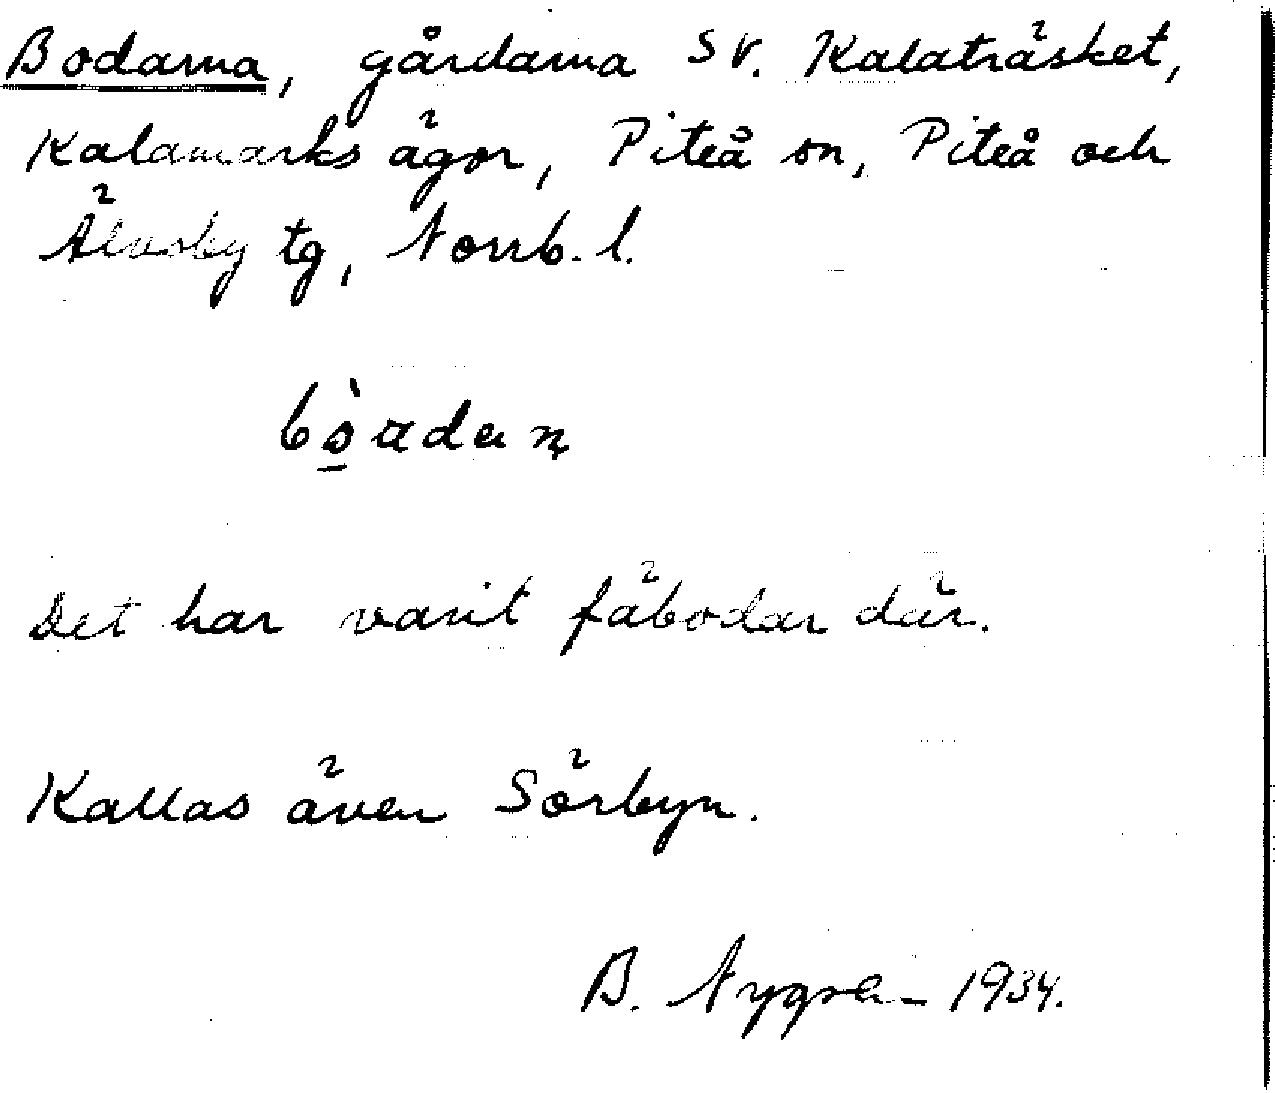 Bodarna, gårdarna SV. Kalaträsket,
Kalamarks ägor, Piteå sn, Piteå och
Älvsby tg, Norrb. l.
Det har varit fäbodar där.
Kallas även Sörbyn.
B. Nygren 1934.